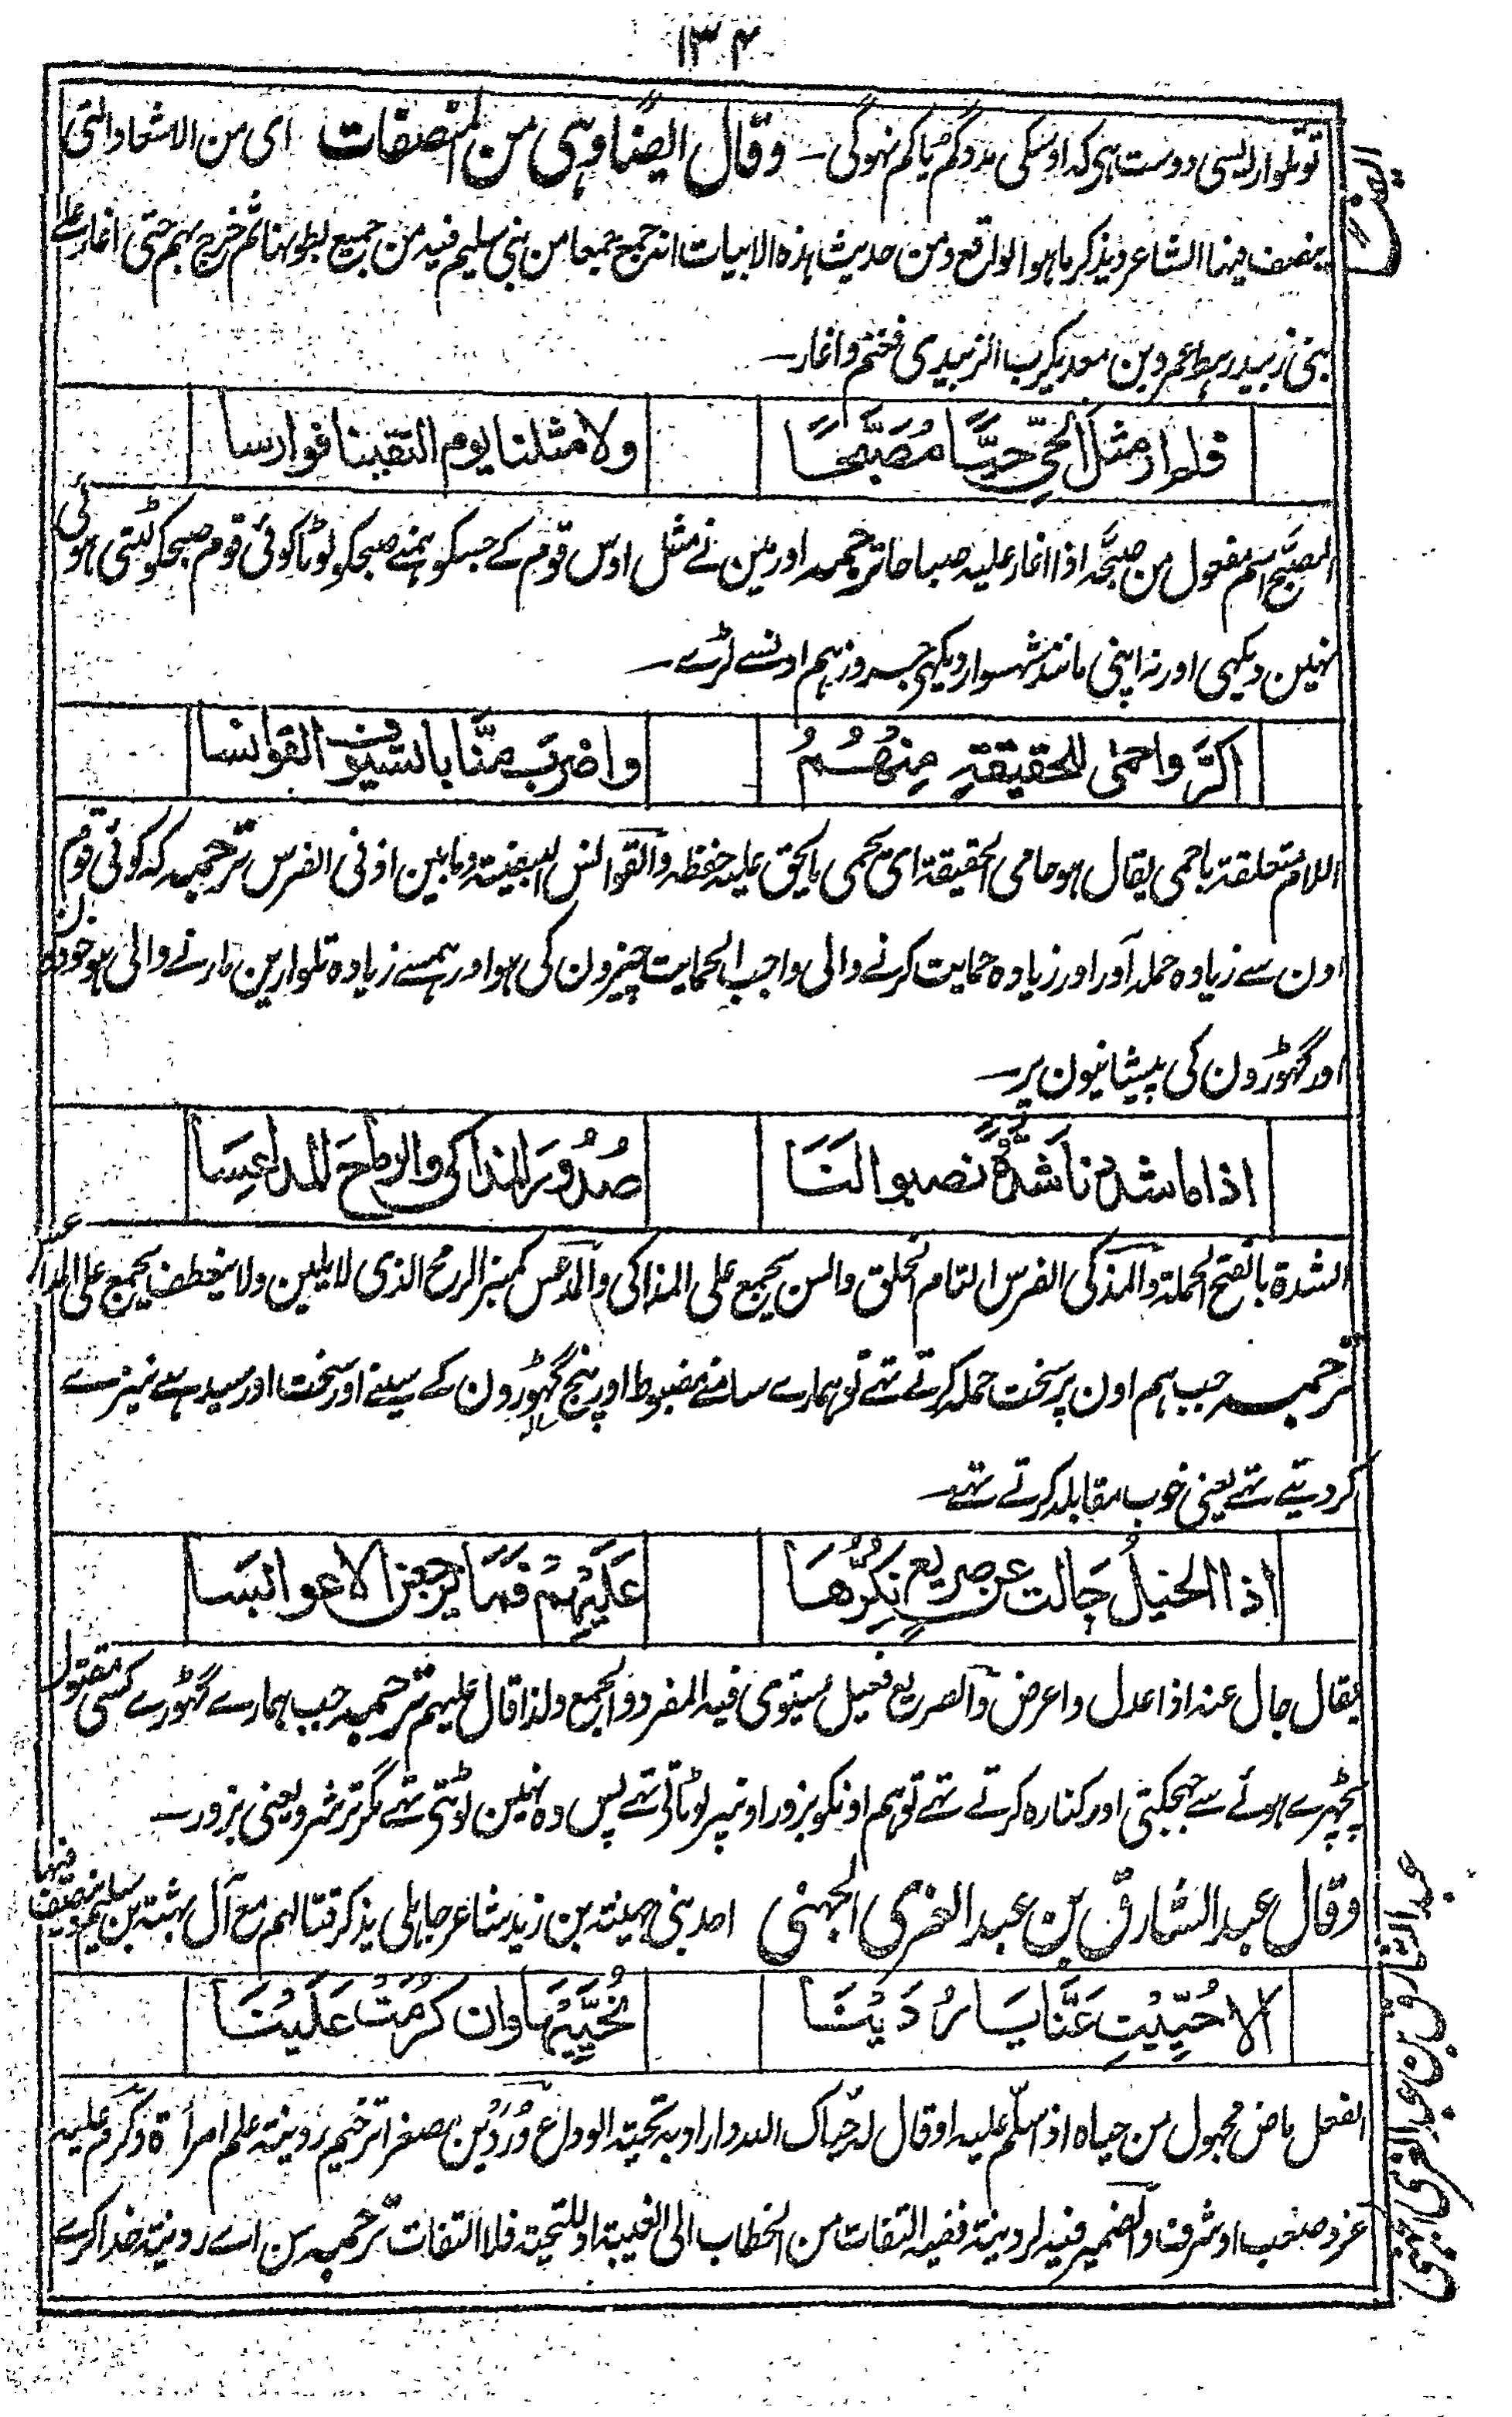 ۱۳۴
تو تلوار ایسی دوست ہی کہ اوسکی مدد گم یا کم نہوگی ـ وقال ایضًا وہی من المنصفات ای من الاشعار التی
ینصف فیہا الشاعر ویذکر ما ہو الواقع ومن حدیث ہذہ الابیات انہ جمع جمعا من بنی سلیم فیہ من جمیع بطونہا ثم خرج بہم حتی اغار علی
بنی زبید رہط عمرو بن معدیکرب الزبیدی فغنم واغار ـ
فلم ار مثل الحَیِّ حَیًّا مُصَبَّحًا
ولا مثلنا یوم التقینا فوارسا
المصبَّح اسم مفعول من صبَّحہ اذا اغار علیہ صباحا ترجمہ اور مین نے مثل اوس قوم کے جسکو ہمنے صبحکو لوٹا کوئی قوم صبحکو لٹتی ہوئی
نہین دیکہی اور نہ اپنی مانند شہسوار دیکہی جسروز ہم اونسے لڑے ـ
اکرَّ واحمٰی للحقیقةِ مِنهُمُ
واضربَ مِنَّا بالسیوف القوانسا
اللام متعلقة باحمی یقال ہو حامی الحقیقة ای یحمی ما یحق علیہ حفظہ والقوانس البیضة وما بین اذنی الفرس ترجمہ کہ کوئی قوم
اون سے زیادہ حملہ آور اور زیادہ حمایت کرنے والی واجب الحمایت چیزون کی ہو اور ہمسے زیادہ تلوارین مارنے والی ہو خودون
اور گہوڑون کی پیشانیون پر ـ
اذا ما شددنا شَدَّةً نصبوا لنَا
صُدُورَ المذاکی والرماحَ المداعِسَا
الشدة بالفتح الحملة والمذکی الفرس التام الخلق والسن یجمع علی المذاکی والمدعس کمنبر الرمح الذی لا یلین ولا ینعطف یجمع علی المداعس
ترجمہ جب ہم اون پر سخت حملہ کرتے تہے تو ہمارے سامنے مضبوط اور پنج سالہ گہوڑون کے سینے اور سخت اور سیدہے نیزے
کردیتے تہے یعنی خوب مقابلہ کرتے تہے ـ
اذا الخیلُ جَالت عن صریعٍ نَکُرُّهَا
عَلَیْهِمْ فَمَا یرجعن الا عوابسَا
یقال جال عنہ اذا عدل واعرض والصریع فعیل یستوی فیہ المفرد والجمع ولذا قال علیہم ترجمہ جب ہمارے گہوڑے کسی مقتول
پچھڑے ہوئے سے جہجکتی اور کنارہ کرتے تہے تو ہم اونکو بزور اونپر لوٹاتی تہے پس وہ نہین لوٹتی تہے مگر ترشرو یعنی بزور ـ
وقال عبد الشارق بن عبد العزی الجہنی احد بنی جہینة بن زید شاعر جاہلی یذکر قتالہم مع آل بہثة بن سلیم وینصف فیہا
الا حُیِّیْتِ عَنَّا یَا رُدَیْنَا
نُحَیِّیْهَا وان کَرُمَتْ عَلَیْنَا
الفعل ماض مجہول من حیاہ اذا سلّم علیہ او قال لہ حیّاک اللہ واراد بہ تحیة الوداع ورُدَیْن مصغرا ترخیم ردینة علم امرأة وکرم علیہ
عز وصعب او شرف والضمیر فیہ لردینة ففیہ التفات من الخطاب الی الغیبة او للتحیة فلا التفات ترجمہ سن اے ردینہ خدا کرے
عبد الشارق بن عبد العزی الجہنی